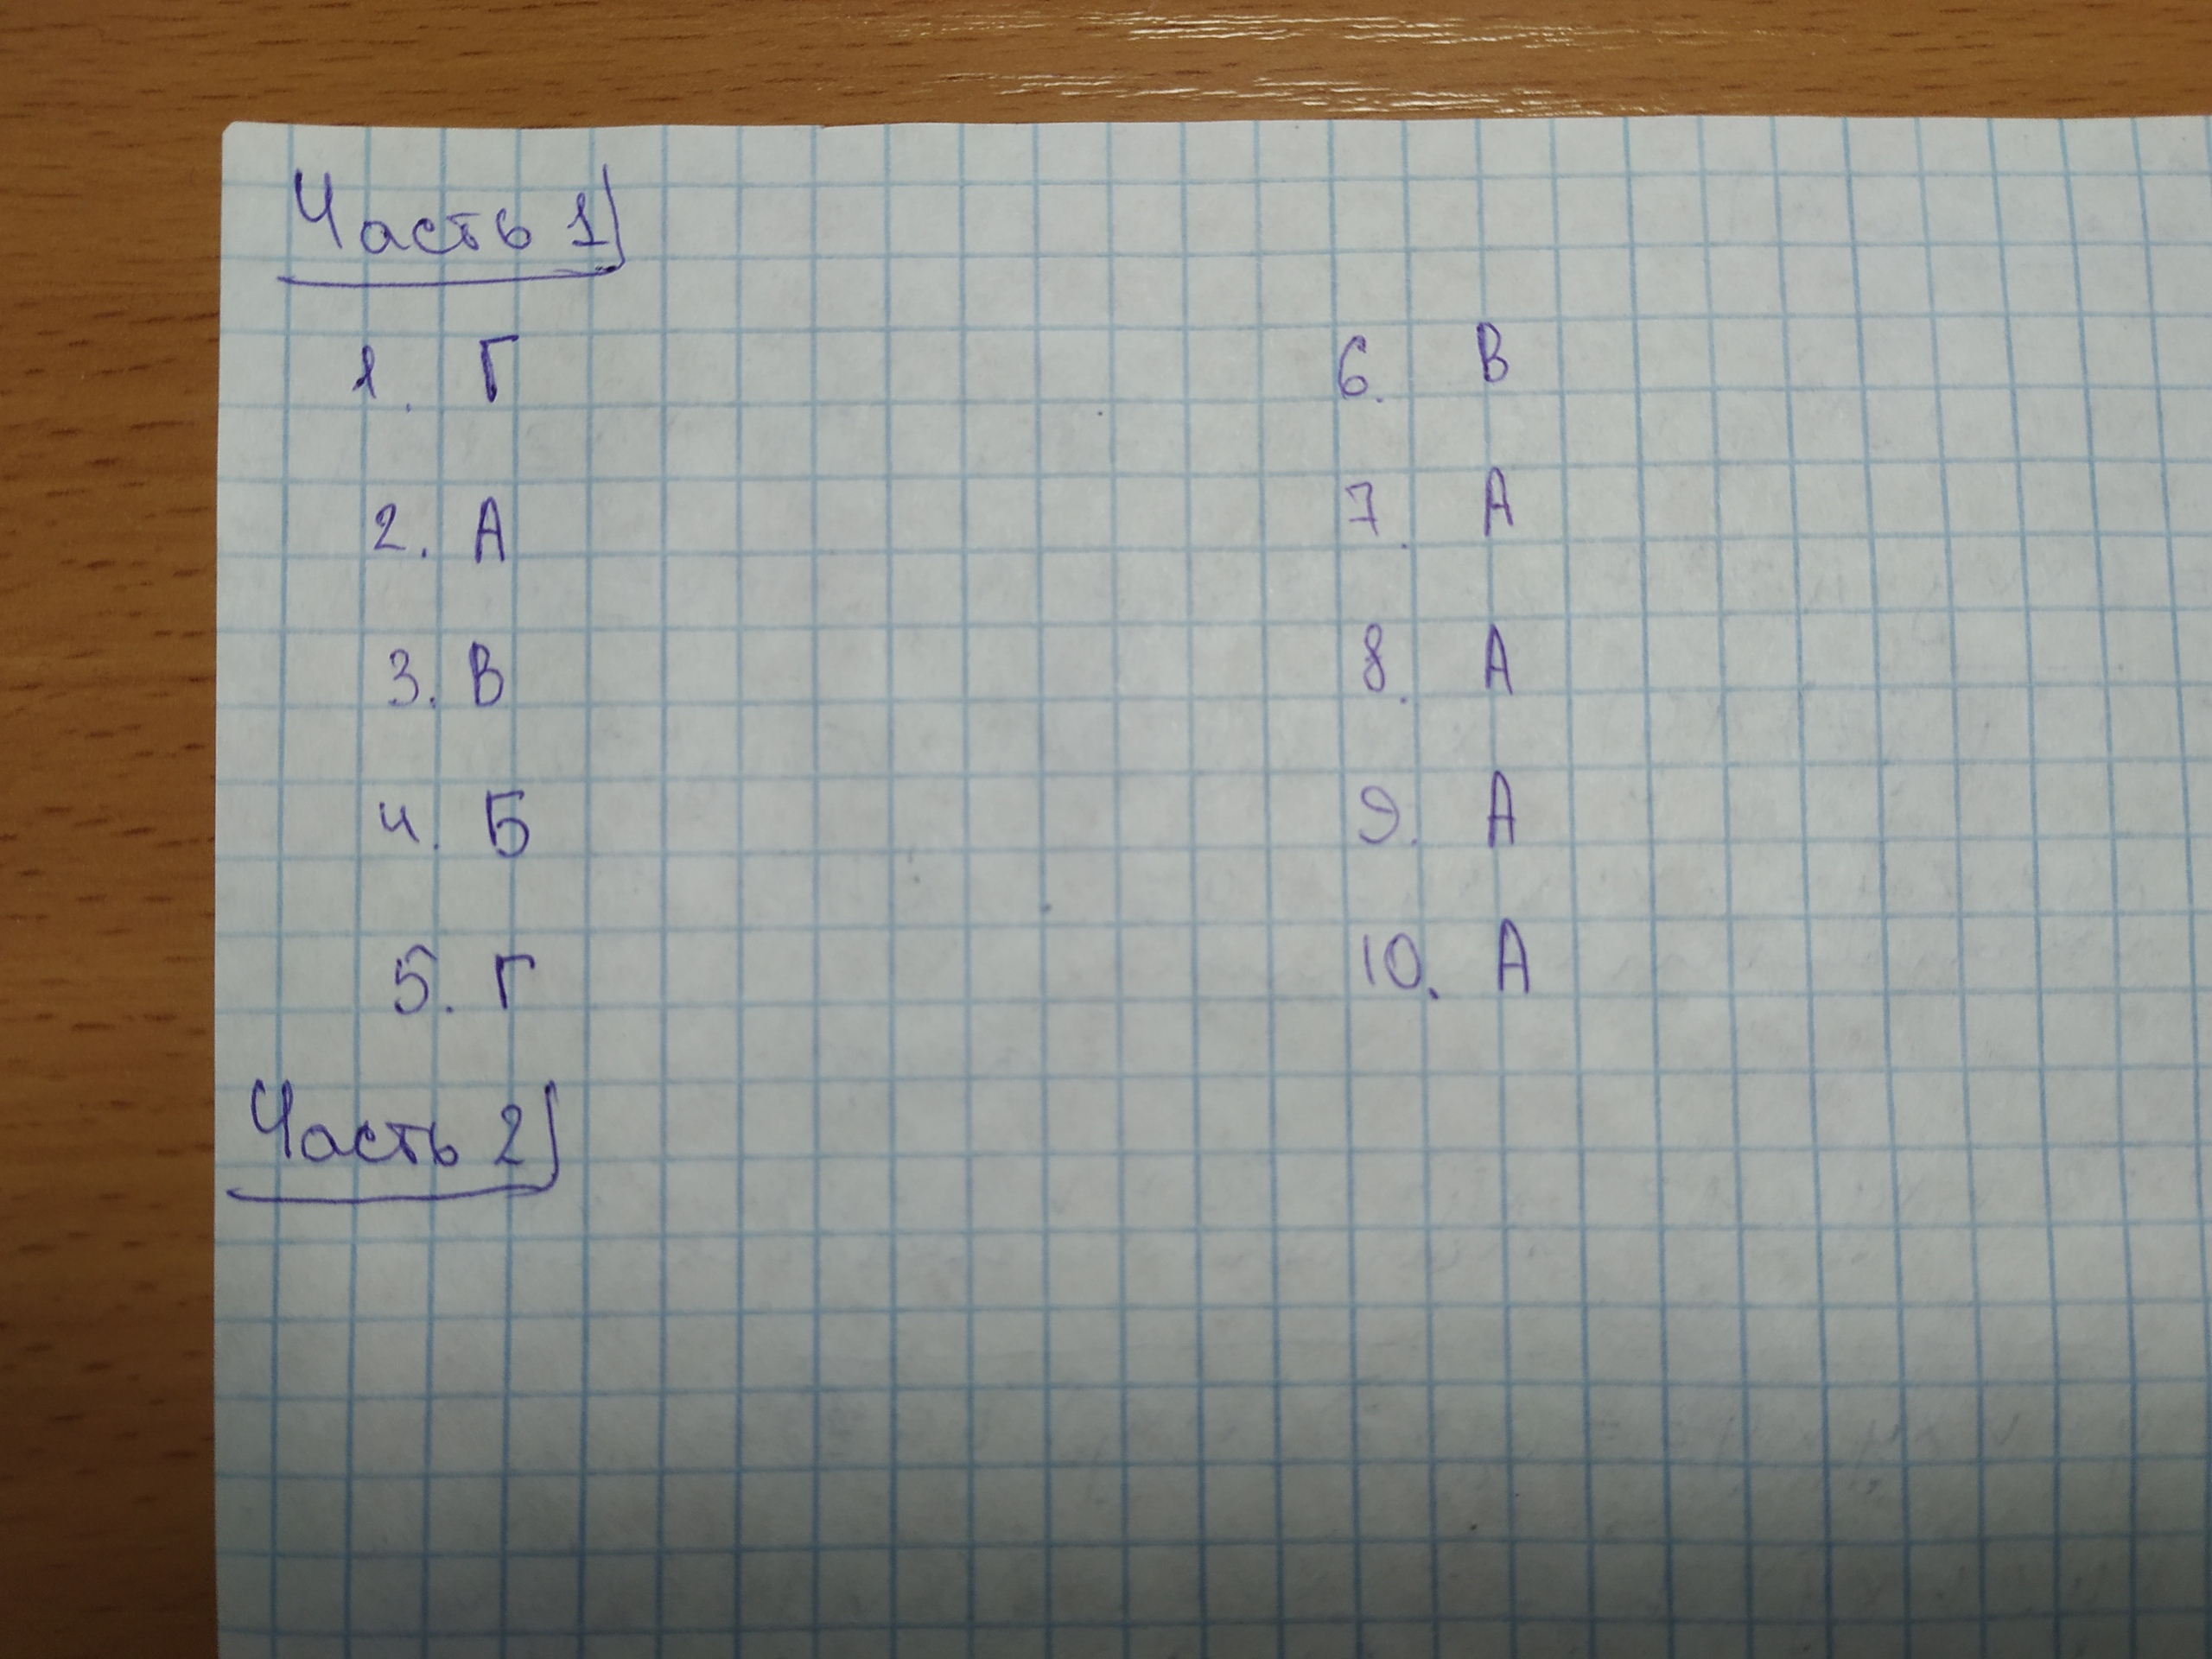 Часть 1
1. Г
2. А
3. В
4. Б
5. Г
6. В
7. А
8. А
9. А
10. А
Часть 2